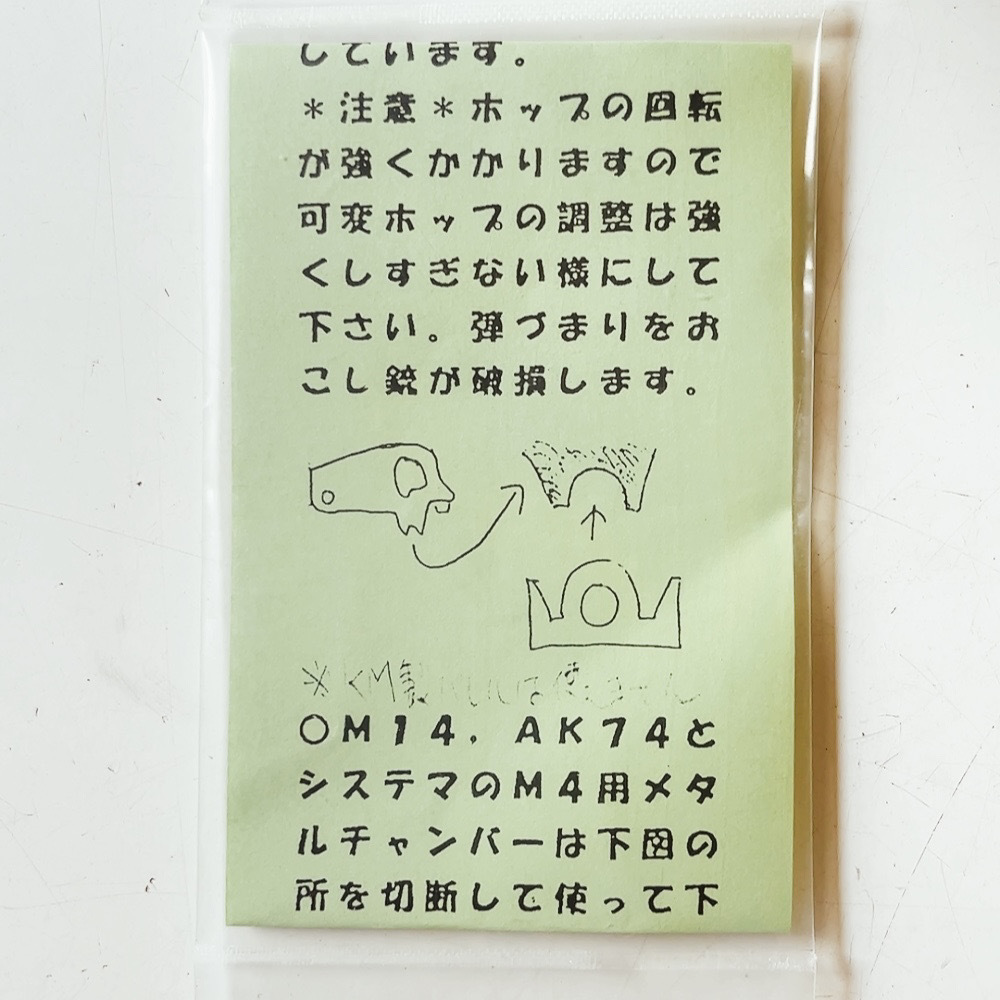 しています。
＊注意＊ホップの回転
が強くかかりますので
可変ホップの調整は強
くしすぎない様にして
下さい。弾づまりをお
こし銃が破損します。
※KM製 は使えません
○M14，AK74と
システマのM4用メタ
ルチャンバーは下図の
所を切断して使って下